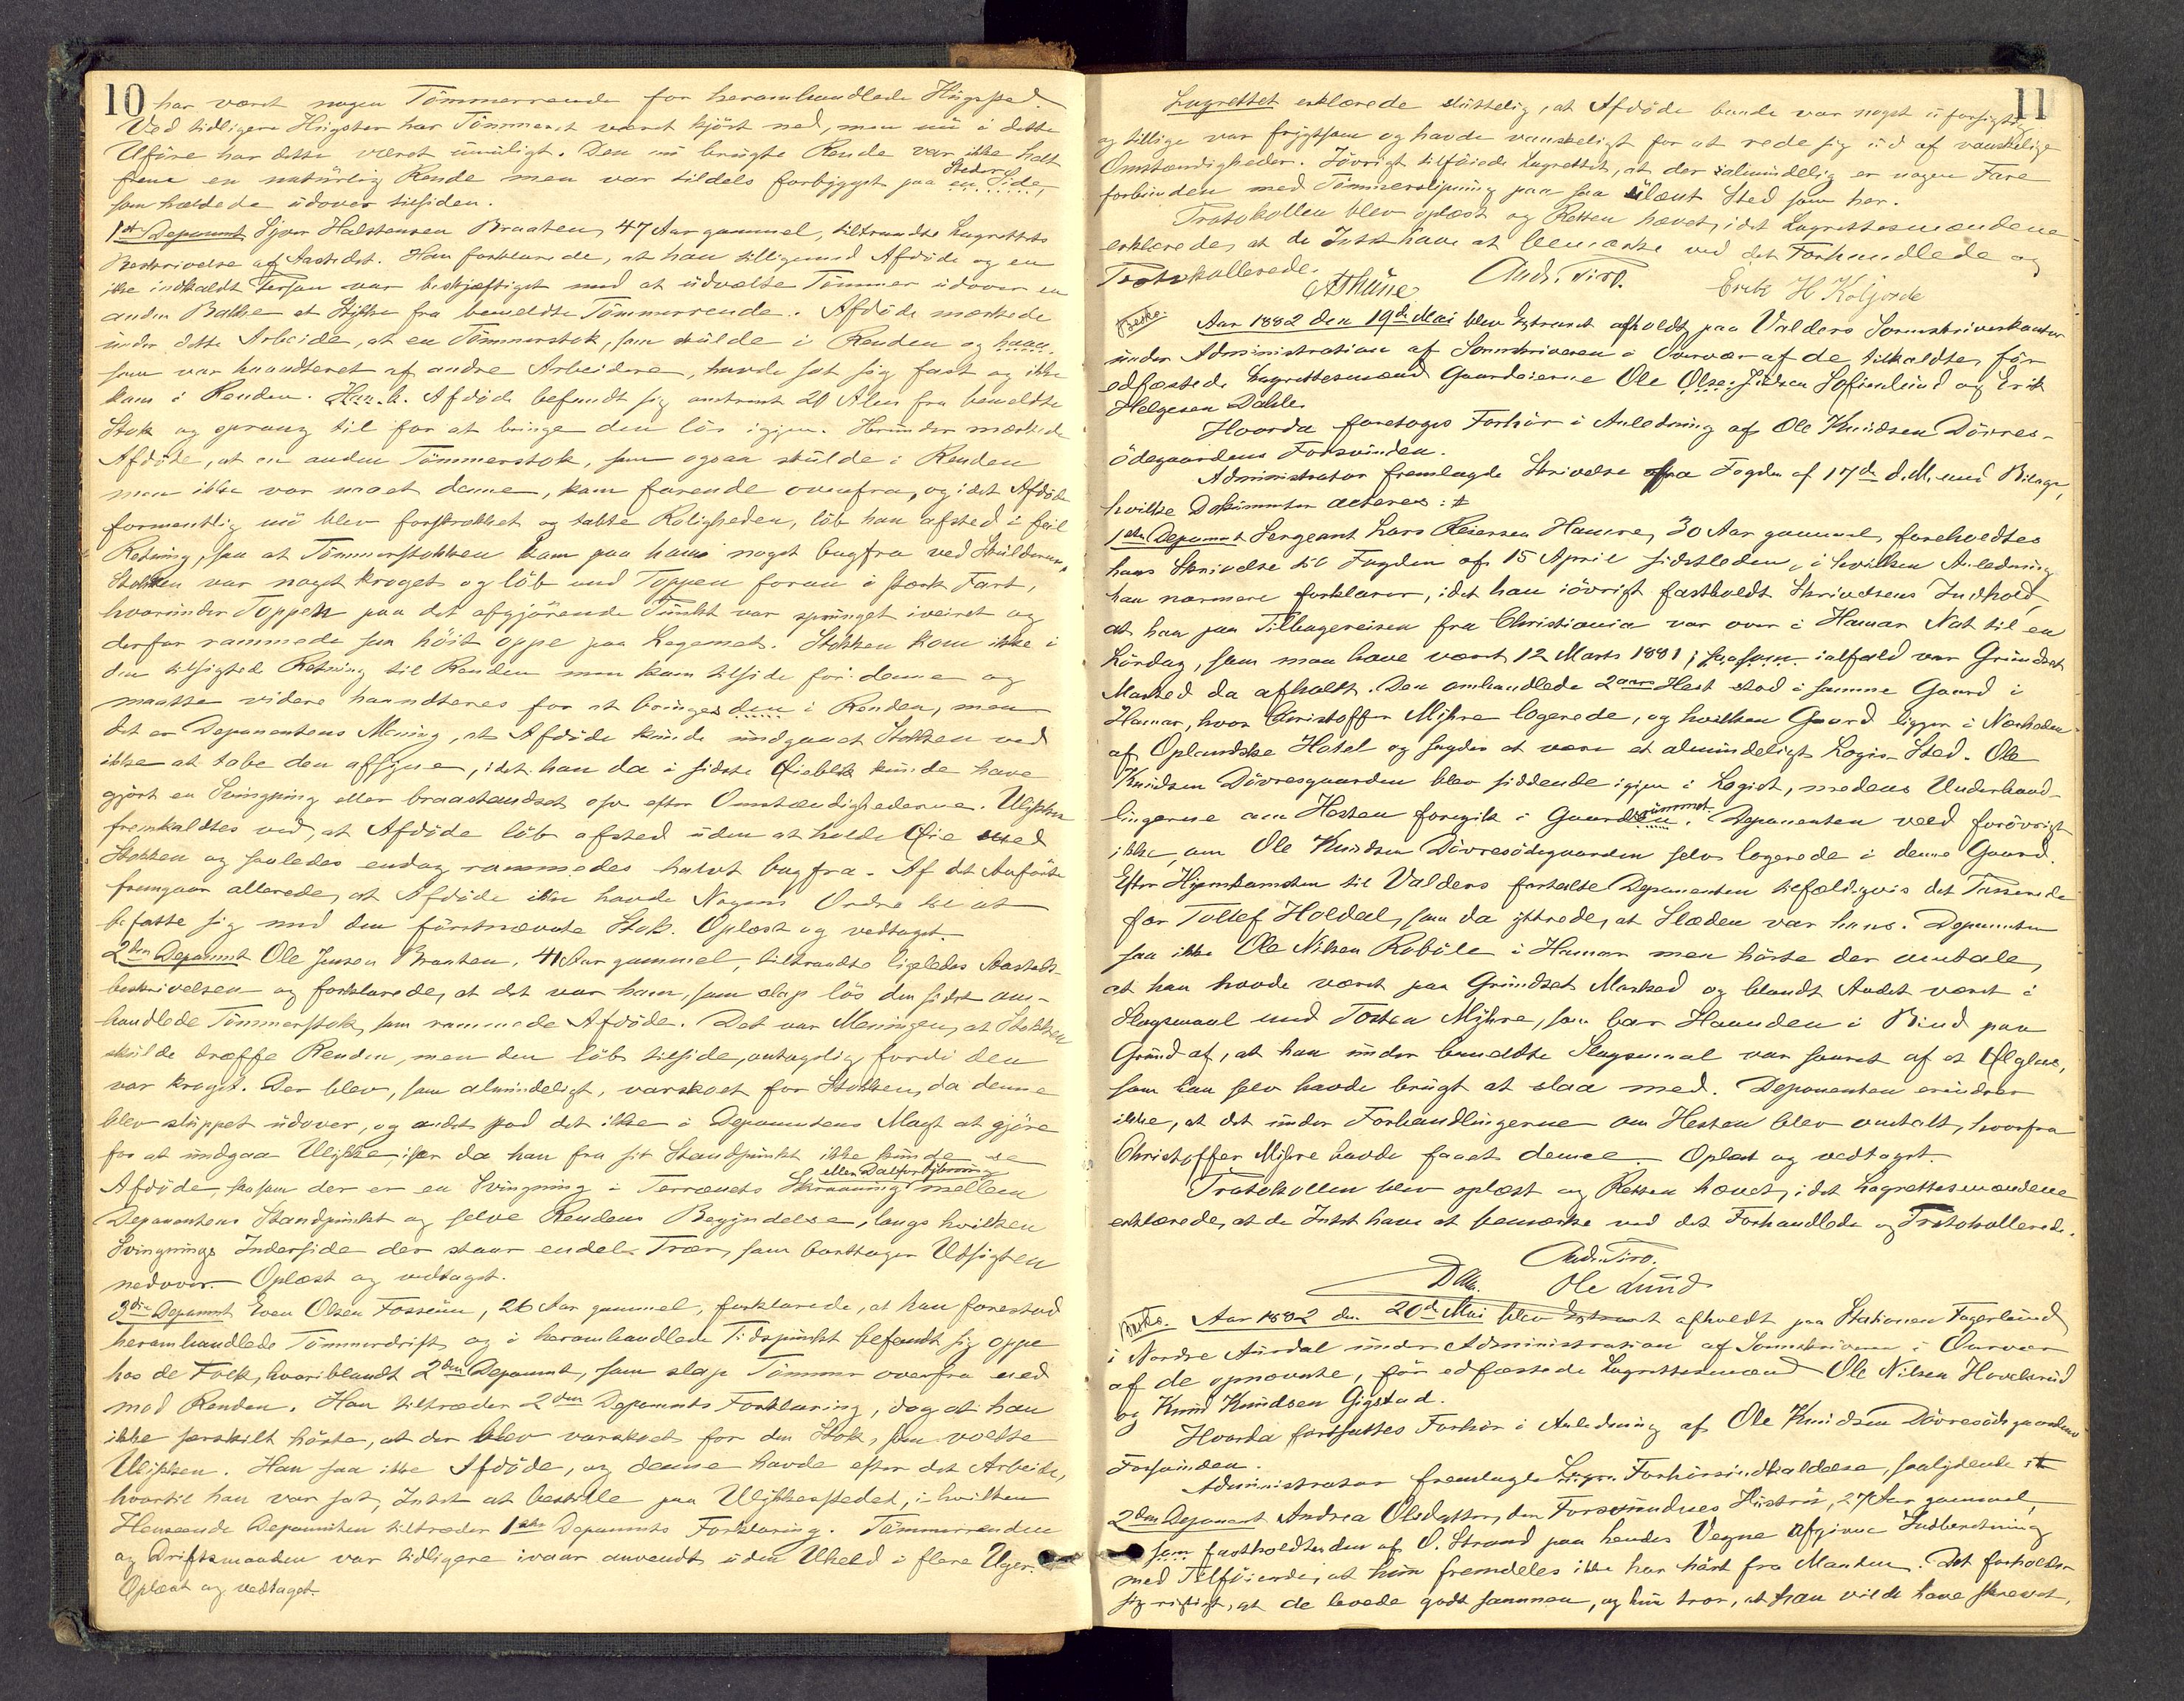 10
har været nogen Tömmerrende for heromhandlede Hugsted.
Ved tidligere Hugster har Tömmeret været kjört ned, men nu i dette
Uföre har dette været umuligt. Den nu brugte Rende var ikke helt
frem en naturlig Rende men var tildels forbygget paa en Side, Steder
som hældede udover tilsiden.
1ste Deponent Syver Halstensen Braaten, 47 Aar gammel, tiltraadte Lagrettets
Beskrivelse af Aastedet. Han forklarede, at han tilligemed Afdöde og en
ikke indkaldt Person var beskjæftiget med at udvælte Tömmer udover en
anden Bakke et Stykke fra bemeldte Tömmerrende. Afdöde mærkede
under dette Arbeide, at en Tömmerstok, som skulde i Renden og
som var haandteret af andre Arbeidere, havde sat sig fast og ikke
kom i Renden. Afdöde befandt sig omtrent 20 Alen fra bemeldte
Stok og sprang til for at bringe den lös igjen. Herunder mærkede
Afdöde, at en anden Tömmerstok, som ogsaa skulde i Renden
men ikke var naaet denne, kom farende ovenfra, og idet Afdöde
formentlig nu blev forskrækket og tabte Roligheden, löb han afsted i feil
Retning, saa at Tömmerstokken kom paa ham noget bagfra ved Skulderen.
Stokken var noget kroget og löb med Toppen foran i stærk Fart,
hvorunder Toppen paa det afgjörende Punkt var sprunget iveiret og
derfor rammede saa höit oppe paa Legemet. Stokken kom ikke i
den tilsigtede Retning til Renden men kom tilside for denne og
maatte videre haandteres for at bringes den i Renden, men
det er Deponentens Mening, at Afdöde kunde undgaaet Stokken ved
ikke at tabe den afsyne, idet han da i sidste Öieblik kunde have
gjört en Svingning eller braastandset osv efter Omstændighederne. Ulykken
fremkaldtes ved, at Afdöde löb afsted uden at holde Öie med
Stokken og saaledes endog rammedes halvt bagfra. Af det Anförte
fremgaar allerede, at Afdöde ikke havde Nogens Ordre til at
befatte sig med den förstnævnte Stok. Oplæst og vedtaget.
2den Deponent Ole Jensen Braaten, 41 Aar gammel, tiltraadte ligeledes Aasteds-
beskrivelsen og forklarede, at det var ham, som slap lös den sidst om-
handlede Tömmerstok, som rammede Afdöde. Det var Meningen, at Stokken
skulde træffe Renden, men den löb tilside, antagelig fordi den
var kroget. Der blev, som almindeligt, varskoet for Stokken, da denne
blev sluppet udover, og andet stod det ikke i Deponentens Magt at gjöre
for at undgaa Ulykke, især da han fra sit Standpunkt ikke kunde se
Afdöde, saasom der er en Svingning i Terrænets Skraaning eller Dalförtjkning mellem
Deponentens Standpunkt og selve Rendens Begyndelse, langs hvilken
Svingnings Inderside der staar endel Trær, som borttager Udsigten
nedover. Oplæst og vedtaget.
3die Deponent Even Olsen Fosseim, 26 Aar gammel, forklarede, at han forestod
heromhandlede Tömmerdrift og i heromhandlede Tidspunkt befandt sig oppe
hos de Folk, hvoriblandt 2den Deponent, som slap Tömmer ovenfra ned
mod Renden. Han tiltræder 2den Deponents Forklaring, dog at han
ikke særskilt hörte, at der blev varskoet for den Stok, som voldte
Ulykken. Han saa ikke Afdöde, og denne havde efter det Arbeide,
hvortil han var sat, Intet at bestille paa Ulykkesstedet, i hvilken
Henseende Deponenten tiltræder 1ste Deponents Forklaring. Tömmerrenden
og Driftsmaaden var tidligere ivaar anvendt uden Uheld i flere Uger.
Oplæst og vedtaget.
11
Lagrettet erklærede sluttelig, at Afdöde baade var noget uforsigtig
og tillige var frygtsom og havde vanskeligt for at rede sig ud af vanskelige
Omstændigheder. Iövrigt tilföiede Lagrettet, at der i almindelig er nogen Fare
forbunden med Tömmerslipning paa saa ulænt Sted som her.
Protokollen blev oplæst og Retten hævet, idet Lagrettesmændene
erklærede, at de Intet have at bemærke ved det Forhandlede og
Protokollerede.
AThune Andr. Piro. Erik H Koljorde
Besko. Aar 1882 den 19de Mai blev Extraret afholdt paa Valders Sorenskriverkontor
under Administration af Sorenskriveren i Overvær af de tilkaldte, för
edfæstede Lagrettesmænd Gaardeierne Ole Olsen Lund og Erik
Helgesen Dahle.
Hvorda foretoges Forhör i Anledning af Ole Knudsen Dövres-
ödegaardens Forsvinden.
Administrator fremlagde Skrivelse fra Fogden af 17de d.M. med Bilage,
hvilke Dokumenter acteres: #
1ste Deponent Sergeant Lars Reiersen Hamre, 30 Aar gammel, foreholdtes
hans Skrivelse til Fogden af 15 April sidstleden, i hvilken Anledning
han nærmere forklarer, idet han iövrigt fastholdt Skrivelsens Indhold,
at han paa Tilbagereisen fra Christiania var over i Hamar Nat til en
Lördag, som maa have været 12 Marts 1881, saasom ialfald var Grundset
Marked da afholdt. Den omhandlede 2aars Hest stod i samme Gaard i
Hamar, hvor Christoffer Mjhre logerede, og hvilken Gaard ligger i Nærheden
af Oplandske Hotel og sagdes at være et almindeligt Logis-Sted. Ole
Knudsen Dövresgaarden blev siddende igjen i Logiet, medens Underhand-
lingerne om Hesten foregik i Gaardsrummet. Deponenten veed forövrigt
ikke, om Ole Knudsen Dövresödegaarden selv logerede i denne Gaard.
Efter Hjemkomsten til Valders fortalte Deponenten tilfældigvis det Passerede
for Tollef Holdal, som da yttrede, at Slæden var hans. Deponenten
saa ikke Ole Nilsen Roböle i Hamar men hörte der omtale,
at han havde været paa Grundset Marked og blandt Andet været i
Slagsmaal med Tosten Mjhre, som bar Haanden i Bind paa
Grund af, at han under bemeldte Slagsmaal var saaret af et Ölglas,
som han selv havde brugt at slaa med. Deponenten erindrer
ikke, at det under Forhandlingerne om Hesten blev omtalt, hvorfra
Christoffer Mjhre havde faaet denne. Oplæst og vedtaget.
Protokollen blev oplæst og Retten hævet, idet Lagrettesmændene
erklærede, at de Intet have at bemærke ved det Forhandlede og Protokollerede.
Andr. Piro.
Ole Lund
Besko. Aar 1882 den 20de Mai blev Extraret afholdt paa Stationen Fagerlund
i Nordre Aurdal under Administration af Sorenskriveren i Overvær
af de opnævnte, för edfæstede Lagrettesmænd Ole Nilsen Hovelsrud
og Knud Knudsen Gigstad.
Hvorda fortsattes Forhör i Anledning af Ole Knudsen Dövresödegaardens
Forsvinden.
Administrator fremlagde Forhörsindkaldelse, saalydende: #
2den Deponent Andrea Olsdatter, den Forsvundnes Hustru, 27 Aar gammel,
fastholdt den af O. Strand paa hendes Vegne afgivne Indberetning
med Tilföiende, at hun fremdeles ikke har hört fra Manden. Det forholder
sig rigtigt, at de levede godt sammen, og hun tror, at han vilde have skrevet,